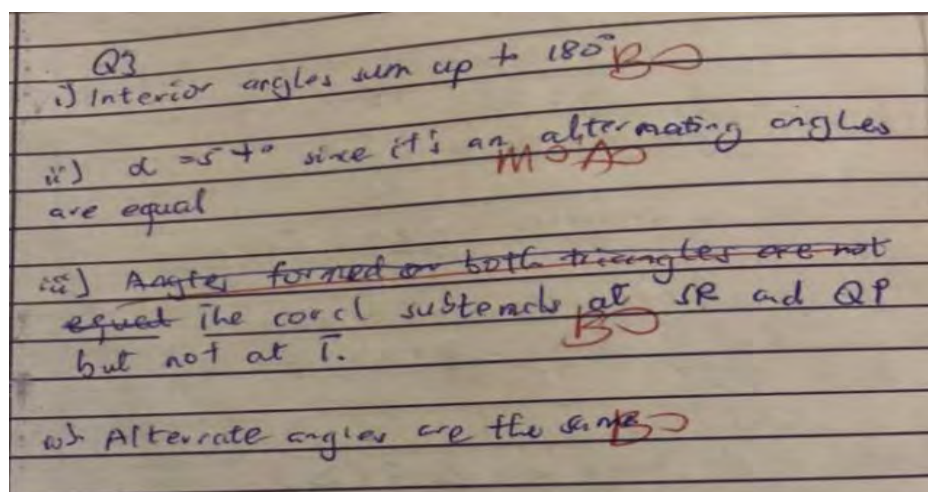 Q3
i) Interior angles sum up to 180° B0
ii) α = 57° since it's an alternating angles
M0 A0
are equal
iii) Angles formed on both triangles are not
equal The cord subtends at SR and QP
B0
but not at T.
iv) Alternate angles are the same B0